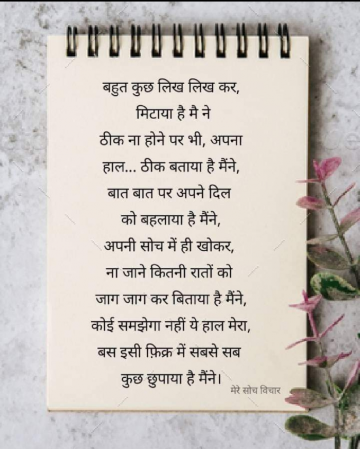 बहुत कुछ लिख लिख कर,
मिटाया है मै ने
ठीक ना होने पर भी, अपना
हाल... ठीक बताया है मैंने,
बात बात पर अपने दिल
को बहलाया है मैंने,
अपनी सोच में ही खोकर,
ना जाने कितनी रातों को
जाग जाग कर बिताया है मैंने,
कोई समझेगा नहीं ये हाल मेरा,
बस इसी फ़िक्र में सबसे सब
कुछ छुपाया है मैंने।
मेरे सोच विचार